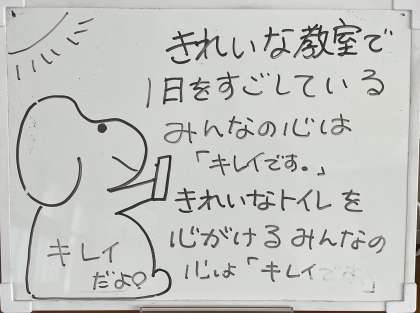 きれいな教室で
1日をすごしている
みんなの心は
「キレイです。」
きれいなトイレを
心がけるみんなの
心は「キレイです。」
キレイ
だよ♡